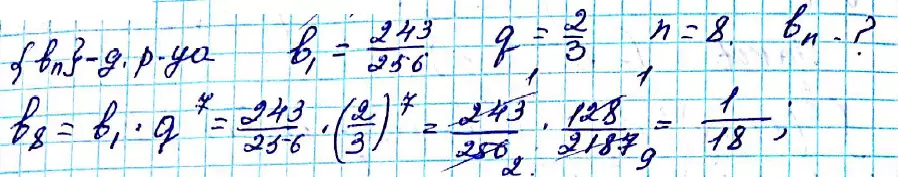 {bₙ} - г. р-уа b₁ = 243/256 q = 2/3 n = 8. bₙ - ?
b₈ = b₁ · q⁷ = 243/256 · (2/3)⁷ = 243/256 · 128/2187 = 1/18 ;